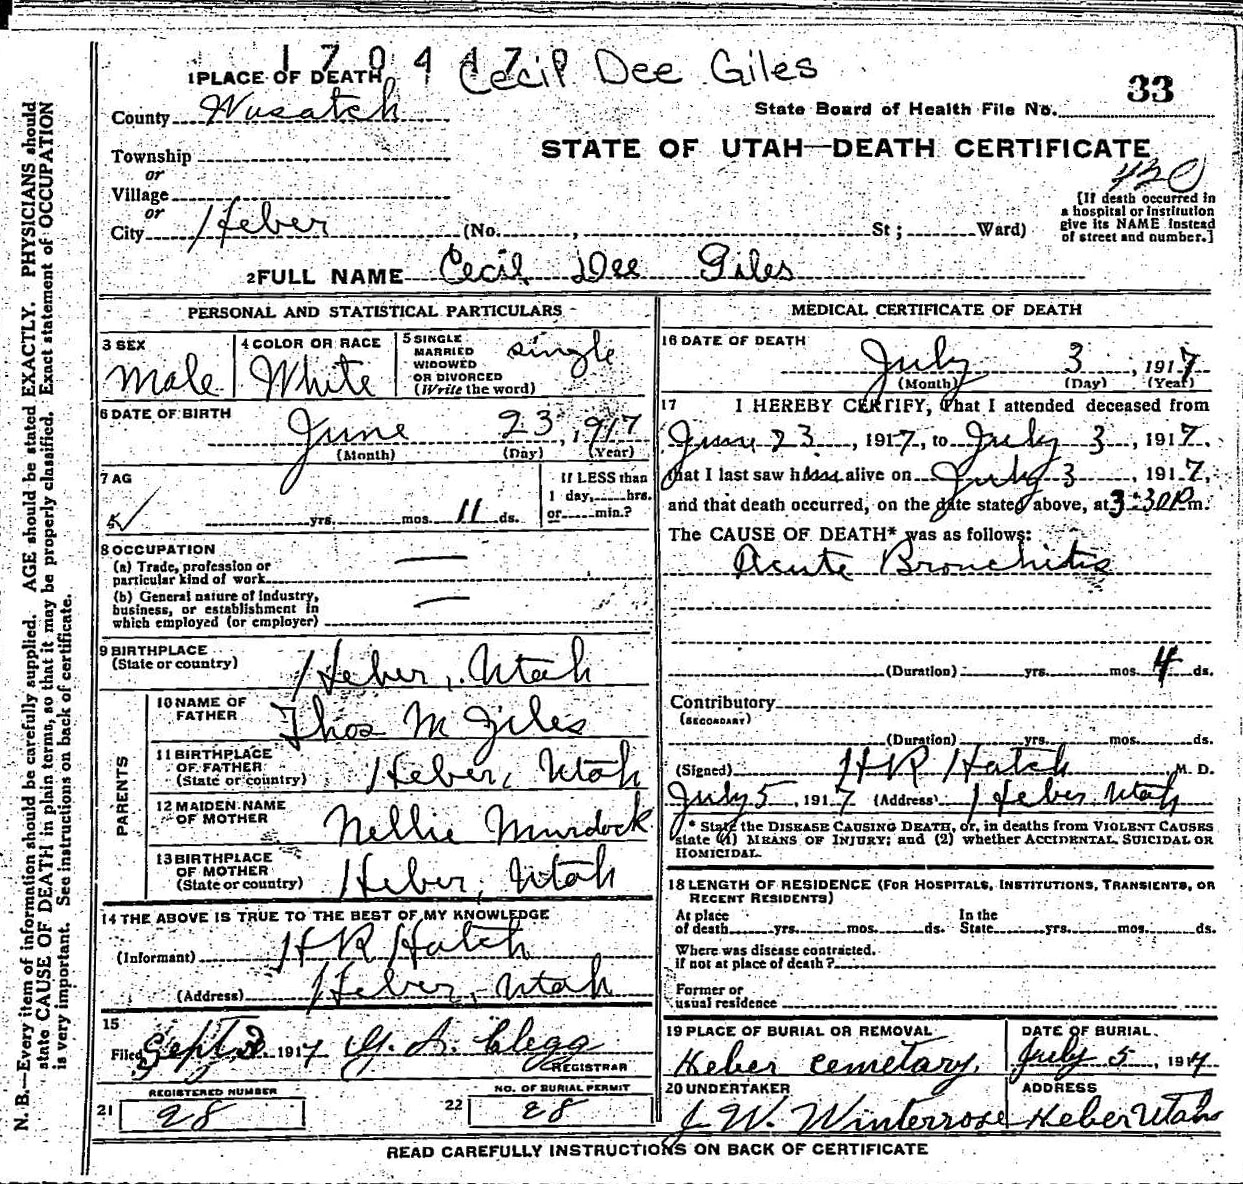 170447 Cecil Dee Giles
1 PLACE OF DEATH
33
County Wasatch
State Board of Health File No.
Township
STATE OF UTAH—DEATH CERTIFICATE
or
Village
420
or
[If death occurred in
a hospital or institution
give its NAME instead
of street and number.]
City Heber (No. , St; Ward)
2 FULL NAME Cecil Dee Giles
PERSONAL AND STATISTICAL PARTICULARS
3 SEX
Male
4 COLOR OR RACE
White
5 SINGLE
MARRIED
WIDOWED
OR DIVORCED
(Write the word)
single
6 DATE OF BIRTH
June 23, 1917
(Month) (Day) (Year)
7 AG
yrs. mos. 11 ds.
If LESS than
1 day, hrs.
or min.?
8 OCCUPATION
(a) Trade, profession or
particular kind of work
(b) General nature of Industry,
business, or establishment in
which employed (or employer)
9 BIRTHPLACE
(State or country) Heber, Utah
PARENTS
10 NAME OF
FATHER Thos M Giles
11 BIRTHPLACE
OF FATHER
(State or country) Heber, Utah
12 MAIDEN NAME
OF MOTHER Nellie Murdock
13 BIRTHPLACE
OF MOTHER
(State or country) Heber, Utah
14 THE ABOVE IS TRUE TO THE BEST OF MY KNOWLEDGE
(Informant) H R Hatch
(Address) Heber, Utah
15
Filed Sept 1917 Clegg
REGISTRAR
REGISTERED NUMBER
21 28
NO. OF BURIAL PERMIT
22 28
MEDICAL CERTIFICATE OF DEATH
16 DATE OF DEATH
July 3, 1917
(Month) (Day) (Year)
17 I HEREBY CERTIFY, that I attended deceased from
June 23, 1917, to July 3, 1917,
that I last saw him alive on July 3, 1917,
and that death occurred, on the date stated above, at 3:30 P m.
The CAUSE OF DEATH* was as follows:
Acute Bronchitis
(Duration) yrs. mos. 4 ds.
Contributory
(SECONDARY)
(Duration) yrs. mos. ds.
(Signed) H R Hatch M. D.
July 5, 1917 (Address) Heber Utah
* State the DISEASE CAUSING DEATH, or, in deaths from VIOLENT CAUSES
state (1) MEANS OF INJURY; and (2) whether ACCIDENTAL, SUICIDAL OR
HOMICIDAL.
18 LENGTH OF RESIDENCE (FOR HOSPITALS, INSTITUTIONS, TRANSIENTS, OR
RECENT RESIDENTS)
At place
of death yrs. mos. ds.
In the
State yrs. mos. ds.
Where was disease contracted.
if not at place of death?
Former or
usual residence
19 PLACE OF BURIAL OR REMOVAL
Heber Cemetary.
DATE OF BURIAL.
July 5, 1917
20 UNDERTAKER
J W. Winterrose
ADDRESS
Heber Utah
READ CAREFULLY INSTRUCTIONS ON BACK OF CERTIFICATE
N. B.—Every item of information should be carefully supplied. AGE should be stated EXACTLY. PHYSICIANS should
state CAUSE OF DEATH in plain terms, so that it may be properly classified. Exact statement of OCCUPATION
is very important. See instructions on back of certificate.